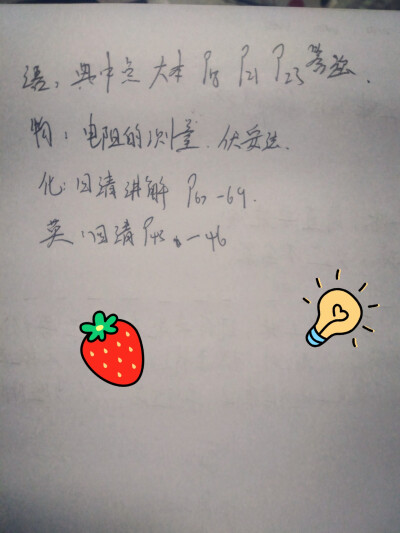 语：典中点 大本 P18 P21 P23
物：电阻的测量. 伏安法.
化：日清讲解 P67-69.
英：日清P45-46